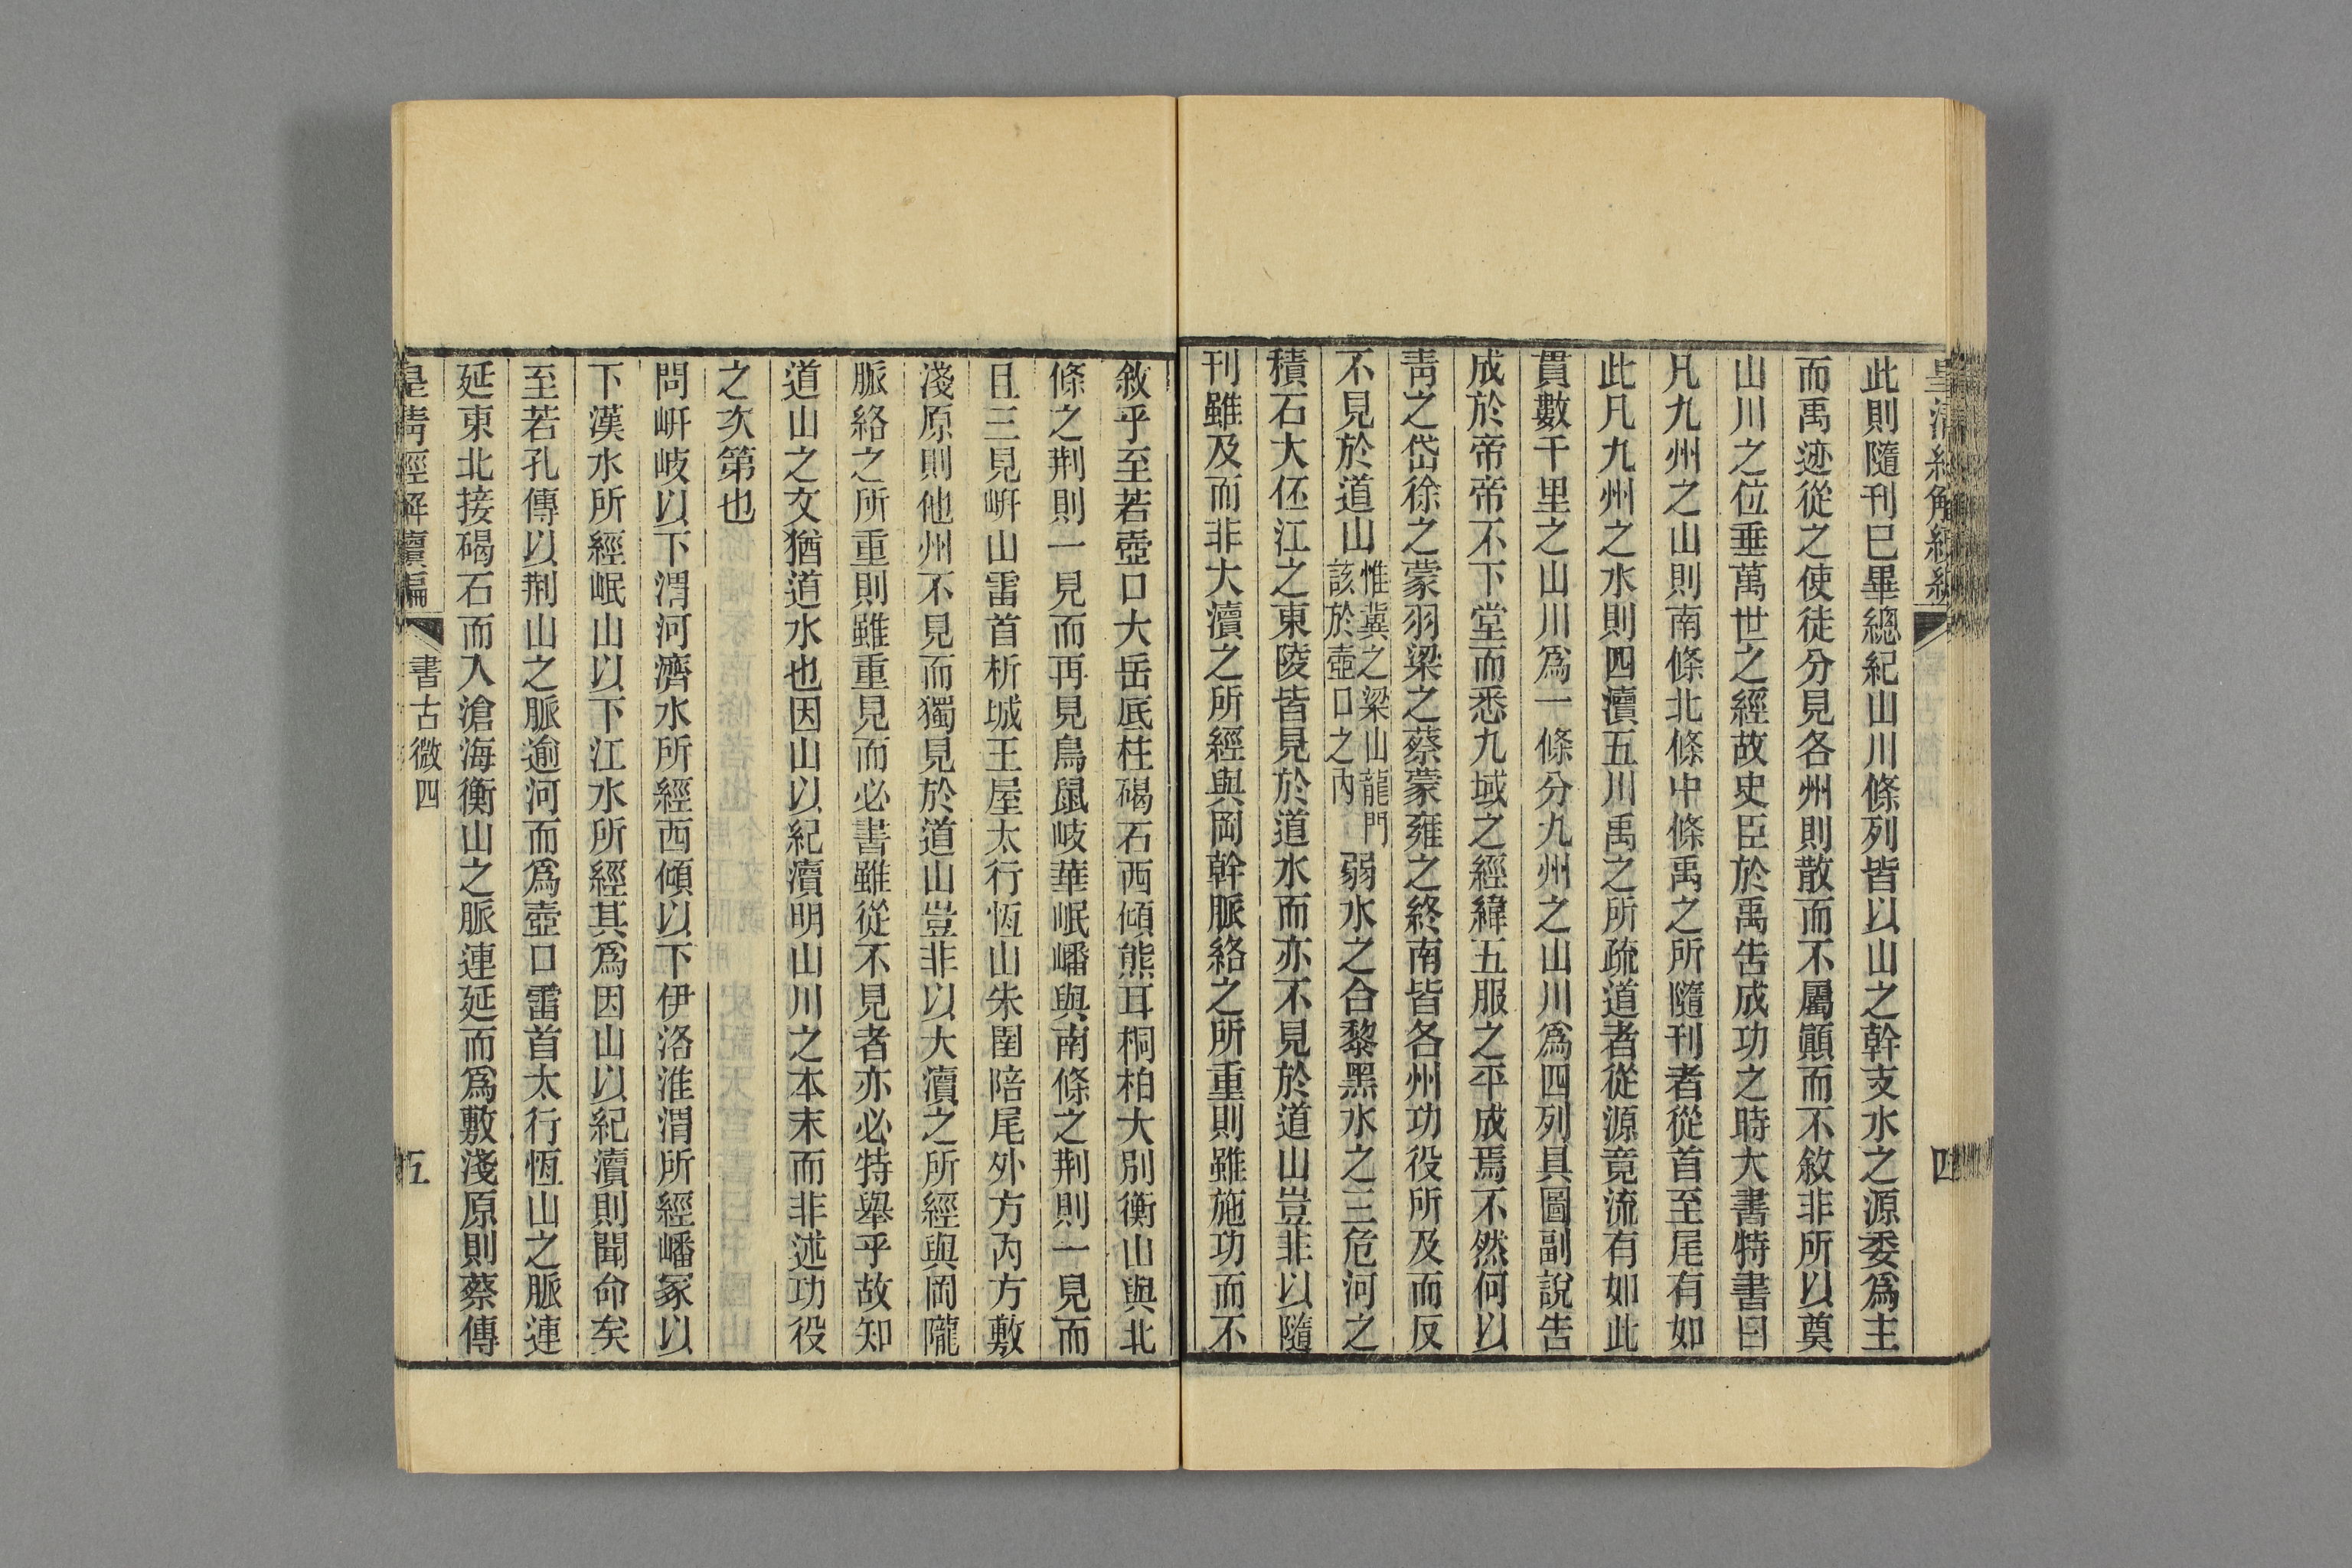 此則隨刊已畢總紀山川條列皆以山之幹支水之源委爲主
而禹迹從之使徒分見各州則散而不屬顚而不敘非所以奠
山川之位垂萬世之經故史臣於禹告成功之時大書特書曰
凡九州之山則南條北條中條禹之所隨刊者從首至尾有如
此凡九州之水則四瀆五川禹之所疏道者從源竟流有如此
貫數千里之山川爲一條分九州之山川爲四列具圖副說告
成於帝帝不下堂而悉九域之經緯五服之平成焉不然何以
靑之岱徐之蒙羽梁之蔡蒙雍之終南皆各州功役所及而反
不見於道山惟冀之梁山龍門該於壺口之內弱水之合黎黑水之三危河之
積石大伾江之東陵皆見於道水而亦不見於道山豈非以隨
刊雖及而非大瀆之所經與岡幹脈絡之所重則雖施功而不
敘乎至若壺口大岳厎柱碣石西傾熊耳桐柏大別衡山與北
條之荆則一見而再見鳥鼠岐華岷嶓與南條之荆則一見而
且三見岍山雷首析城王屋太行恆山朱圉陪尾外方內方敷
淺原則他州不見而獨見於道山豈非以大瀆之所經與岡隴
脈絡之所重則雖重見而必書雖從不見者亦必特舉乎故知
道山之文猶道水也因山以紀瀆明山川之本末而非述功役
之次第也
問岍岐以下渭河濟水所經西傾以下伊洛淮渭所經嶓冢以
下漢水所經岷山以下江水所經其爲因山以紀瀆則聞命矣
至若孔傳以荆山之脈逾河而爲壺口雷首太行恆山之脈連
延東北接碣石而入滄海衡山之脈連延而爲敷淺原則蔡傳
皇淸經解續編 書古微四 五